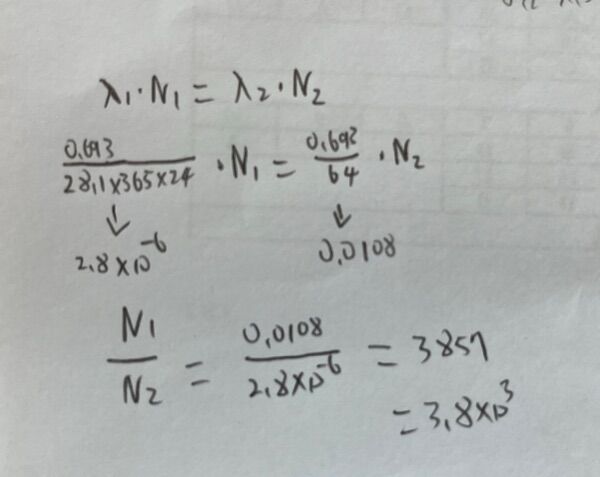 λ1·N1 = λ2·N2
0.693/28.1×365×24 · N1 = 0.693/64 · N2
↓ ↓
2.8×10^-6 0.0108
N1/N2 = 0.0108/2.8×10^-6 = 3857
= 3.8×10^3